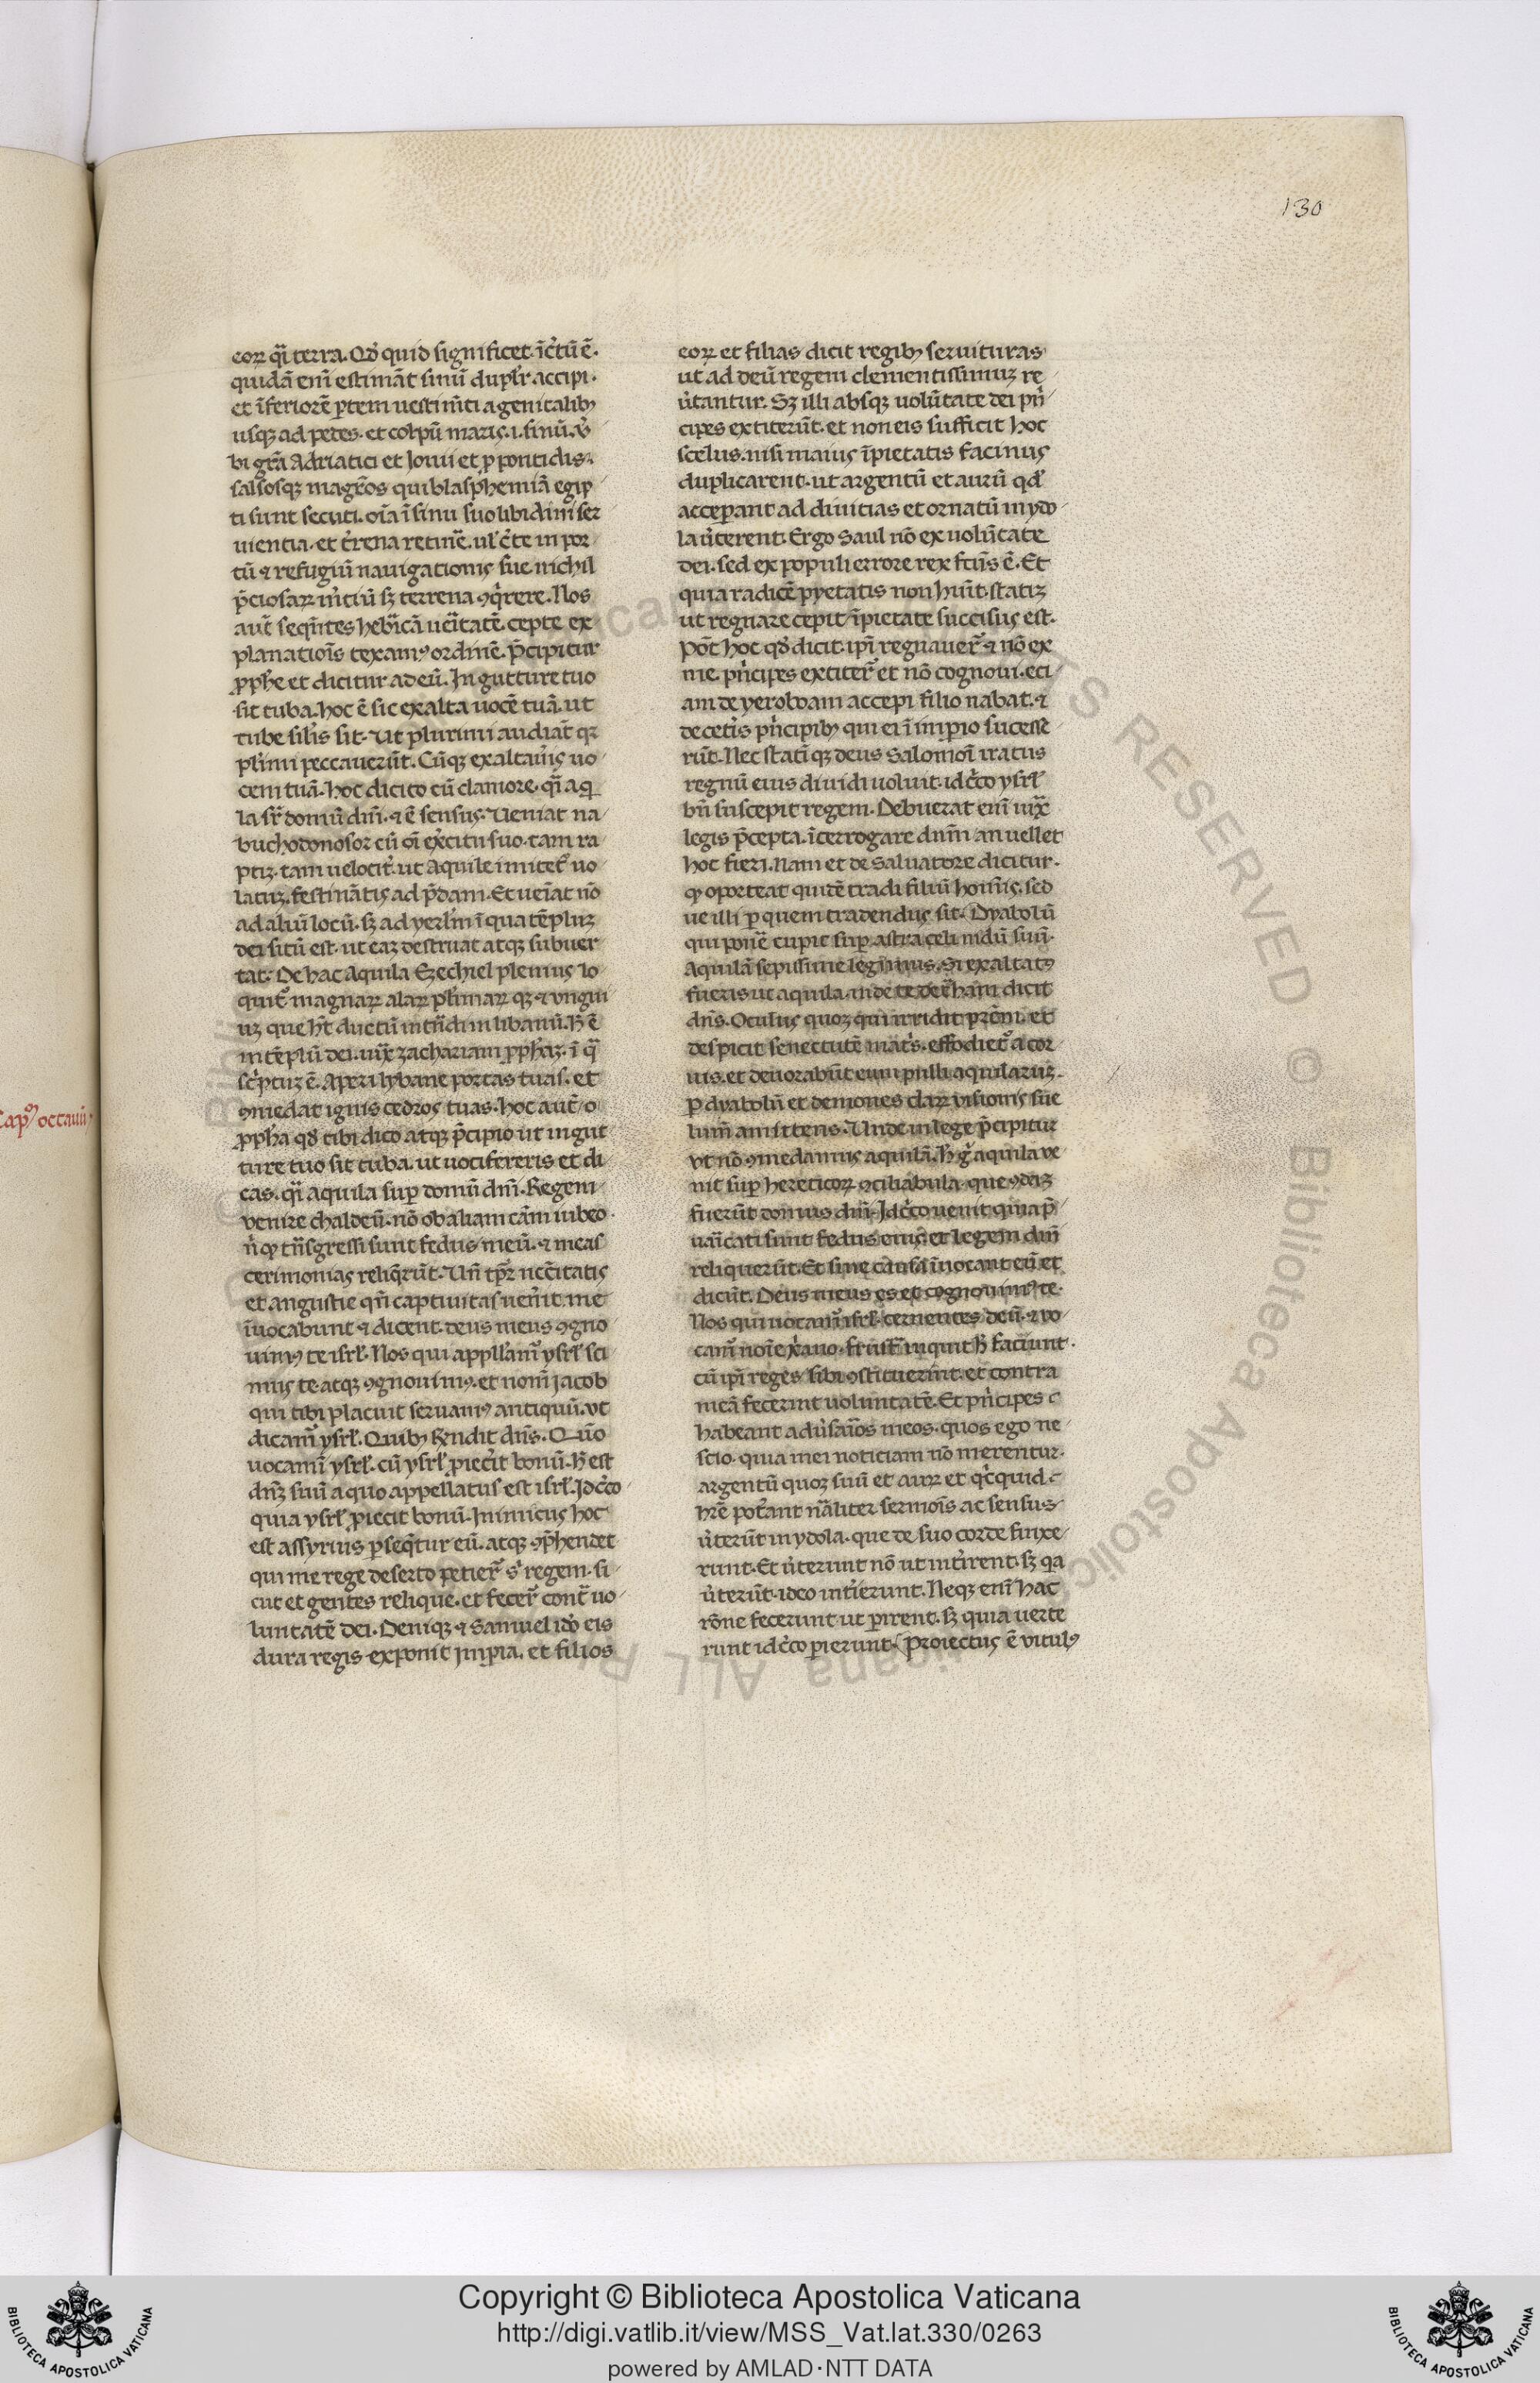 130
eoꝝ qͣi terra. Qď quid significet. īc̓tū ē.
quidā eni̅ estimāt sinū dupl̓r accipi.
et īferiorē ꝑtem uestim̅ti a genitalibꝫ
usqꝫ ad pedes. et colpū maris. i. sinū. v̓
bi gr̄a Adriatici et Ionii et ꝓpontidis.
salsosqꝫ magr̄os qui blasphemiā egip
ti sunt secuti. oīa ī sinu suo libidini ser
uientia. et t̓rena retin̄e. ul̓ c̓te in por
tū ⁊ refugiū nauigationis sue nichil
p̄ciosaꝝ m̓ciū sꝫ terrena ꝯq̓rere. Nos
aut̄ seqn̄tes heb̓icā ueritatē. cepte ex
planatiōis texamꝰ ordinē. P̄cipitur
ꝓphe et dicitur ad eū. In gutture tuo
sit tuba. hoc ē sic exalta uocē tuā. ut
tube sil̓is sit. ut plurimi audiāt qꝛ
pl̓imi peccauerūt. Cūqꝫ exaltau̓is uo
cem tuā. hoc dicito cū clamore. qͣi aq̓
la sr̄ domū dn̄i. ⁊ ē sensus. Ueniat na
buchodonosor cū oī ex̓citu suo. tam ra
ptiꝫ. tam uelocit̓. ut aquile imitet̓ uo
latuꝫ. festinātis ad p̄dam. Et ueīat nō
ad aliū locū. sꝫ ad yerl̓m ī qua tēpluꝫ
dei sitū est. ut eaꝫ destruat atqꝫ subuer
tat. De hac Aquila Ezechiel plenius lo
quit̓. magnaꝝ alaꝝ pl̓imaꝝ qꝫ. ⁊ ungui
uꝫ que ht̄ ductū int̓ndi in libanū. h̄ ē
in tēplū dei. iux̄ zachariam ꝓph̄aꝫ. ī qͣ
sc̓ptuꝫ ē. Aperi lybane portas tuas. et
ꝯmedat ignis cedros tuas. hoc aut̄ o
ꝓpha qď tibi dico atqꝫ p̄cipio ut in gut
ture tuo sit tuba. ut uocifereris et di
cas. qͣi aquila suꝑ domū dn̄i. Regem
venire chaldeū. nō ob aliam cām iubeo.
n̓ ꝙ trͣnsgressi sunt fedus meū. ⁊ meas
cerimonias reliq̓rūt. Un̄ tꝑꝛ nec̄itatis
et angustie qn̄ captiuitas uen̓it. me
īuocabunt ⁊ dicent. deus meus ꝯgno
uimꝰ te isrl̓. Nos qui appll̓am̓ ysrl̓. sci
mus te atqꝫ ꝯgnouimꝰ. et nom̄ iacob
qui tibi placuit seruamꝰ antiquū. vt
dicam̓ ysrl̓. Quibꝫ rn̄dit dn̄s. Quō
uocami̅ ysrl̓. cū ysrl̓ ꝓiec̓it bonū. h̄ est
dn̄ꝫ suū a quo appellatus est isrl̓. Idc̓co
quia ysrl̓ ꝓiecit bonū. Inimicus hoc
est assyrius ꝑseq̄tur eū. atqꝫ ꝯp̄hendet
qui me rege deserto petier̄ s̓ regem. si
cut et gentes relique. et fecer̄ cont̄ uo
luntatē dei. Deniqꝫ ⁊ Samuel id̓o eis
dura regis exponit imꝑia. et filios
eoꝝ et filias dicit regibꝫ seruituras
ut ad deū regem clementissimuꝫ re
u̓tantur. Sꝫ illi absqꝫ uolūtate dei pn̓
cipes extiterūt. et non eis sufficit hoc
scelus. nisi maius īpietatis facinus
duplicarent. ut argentū et aurū qď
acceperant ad diuitias et ornatū in ydo
la u̓terent. Ergo Saul nō ex uolūtate
dei. sed ex populi errore rex ftūs ē. Et
quia radicē pyetatis non h̓uit. statiꝫ
ut regnare cepit īpietate succisus est.
Pōt hoc qď dicit. ipi̅ regnauer̄ ⁊ nō ex
me. pn̓cipes extiter̄ et nō cognoui. eci
am de yeroboam accepi filio nabat. ⁊
de cet̓is pn̓cipibꝫ qui ei ī imꝑio sucesse
rūt. Nec statī qꝫ deus Salomoī iratus
regnū eius diuidi uoluit. idc̓co ysrl̓
bn̄ suscepit regem. Debuerat eni̅ iux̄
legis p̄cepta. īterrogare dn̄m an uellet
hoc fieri. Nam et de saluatore dicitur.
ꝙ oporteat quidē tradi filiū hoīnis. sed
ue illi ꝑ quem tradendus sit. Dyabolū
qui pon̄e cupit suꝑ astra celi nidū suū.
Aquilā sepissime legimus. Si exaltatꝰ
fueris ut aquila. inde te det̓ham dicit
dn̄s. Oculus quoꝫ qui irridit pr̄em. et
despicit senectutē mat̓s. effodiet̓ a cor
uis. et deuorabūt eum pulli aquilaruꝫ.
ꝑ dyabolū et demones claꝝ visionis sue
lum̄ amittens. Unde in lege p̄cipitur
vt nō ꝯmedamus aquilā. h̄ g̓ aquila ve
nit suꝑ hereticoꝝ ꝯciliabula. que ꝯdaꝫ
fuerūt domus dn̄i. Idc̓co uenit quia p̄
uāicati sunt fedus eius. et legem dn̄i
reliquerūt. Et sine causa īuocant eū et
dicūt. Deus meus es et cognouimꝰ te.
Nos qui uocam̓ isrl̓. cernentes deū. ⁊ vo
cam̓ noīe x̓ano. frust̄ inquit h̄ faciunt.
cū ipi̅ reges sibi ꝯstituerint. et contra
meā fecerint uoluntatē. Et pn̓cipes
habeant adu̓saīos meos. quos ego ne
scio. quia mei noticiam nō merentur.
argentū quoꝫ suū et auꝝ et qc̓quid
hr̄e pot̓ant nāliter sermoīs ac sensus
u̓terūt in ydola. que de suo corde finxe
runt. Et u̓terunt nō ut int̓irent. sꝫ qa
u̓terūt. ideo int̓ierunt. Neqꝫ eni̅ hac
rōne fecerunt ut ꝑirent. sꝫ quia uerte
runt idc̓co ꝑierunt. Proiectus ē vitulꝰ
Cap̓ octauū.
Copyright © Biblioteca Apostolica Vaticana
http://digi.vatlib.it/view/MSS_Vat.lat.330/0263
powered by AMLAD·NTT DATA
BIBLIOTECA APOSTOLICA VATICANA
BIBLIOTECA APOSTOLICA VATICANA